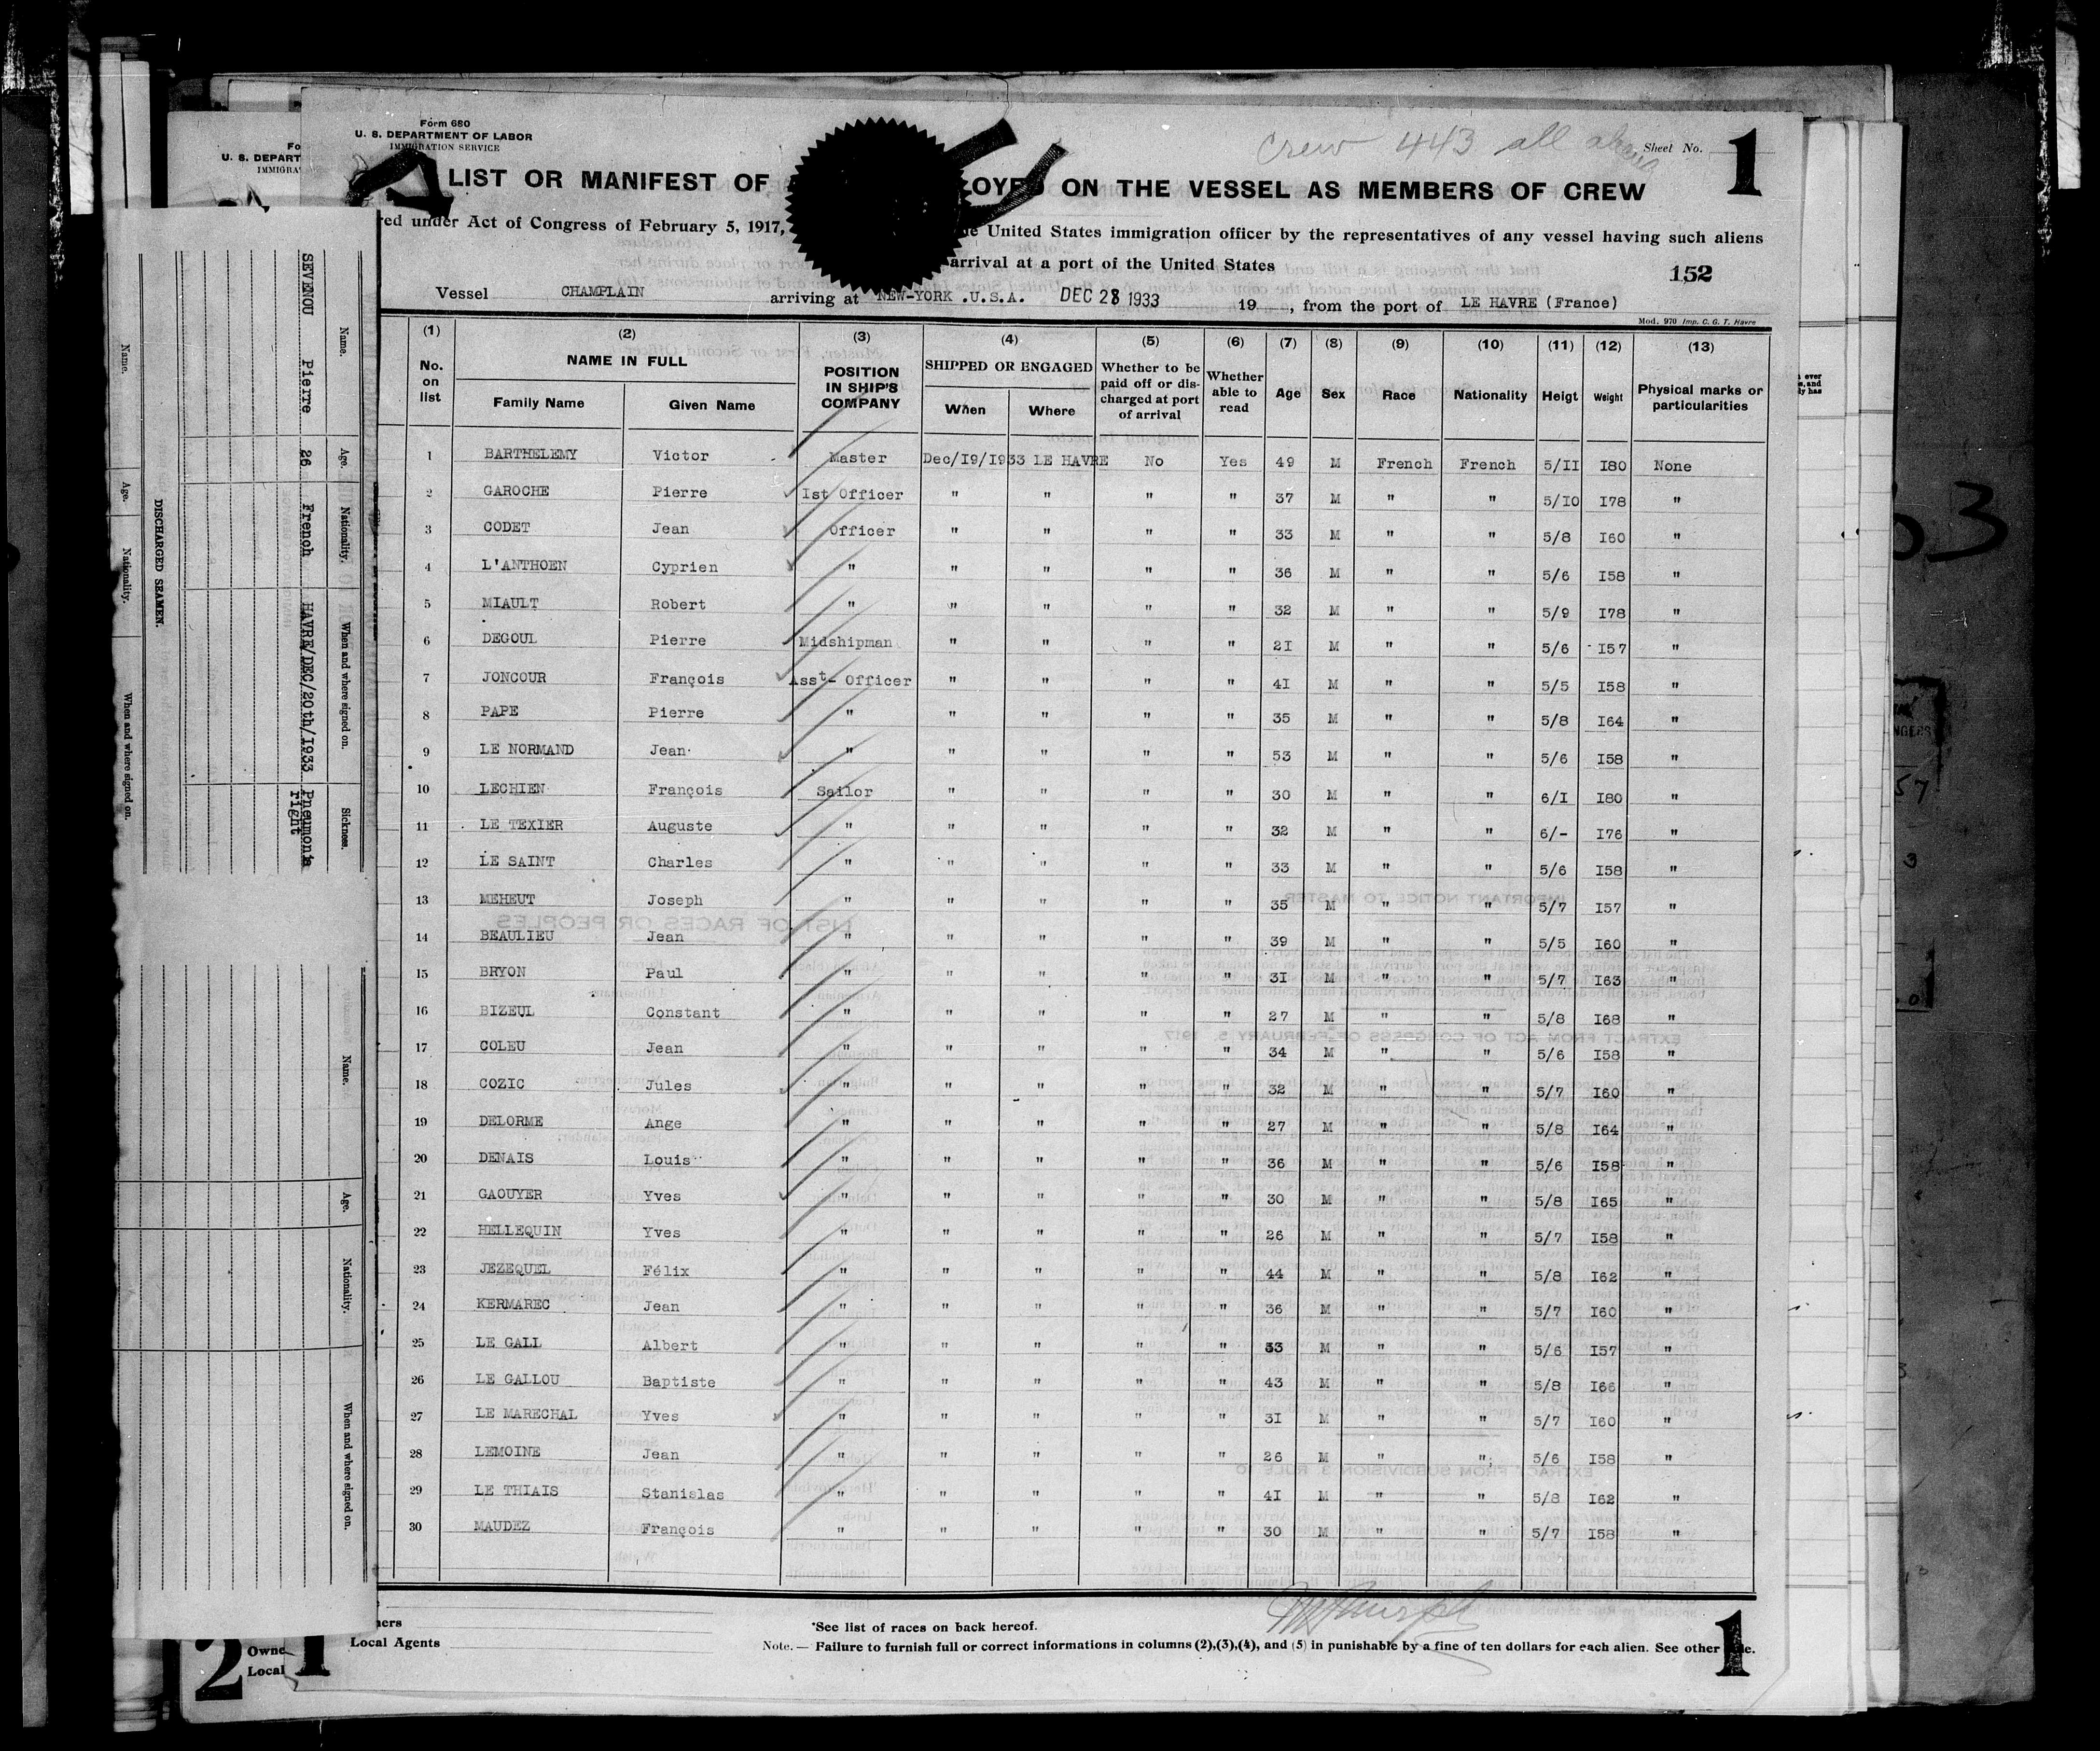 Form 680
U. S. DEPARTMENT OF LABOR
IMMIGRATION SERVICE
Crew 443 all aliens
Sheet No. 1
LIST OR MANIFEST OF ON THE VESSEL AS MEMBERS OF CREW
red under Act of Congress of February 5, 1917, United States immigration officer by the representatives of any vessel having such aliens
arrival at a port of the United States
152
Vessel CHAMPLAIN arriving at NEW-YORK .U.S.A. DEC 28 1933 19 , from the port of LE HAVRE (France)
Mod. 970 Imp. C. G. T. Havre
(1) (2) (3) (4) (5) (6) (7) (8) (9) (10) (11) (12) (13)
No. on list NAME IN FULL Family Name Given Name POSITION IN SHIP'S COMPANY SHIPPED OR ENGAGED When Where Whether to be paid off or discharged at port of arrival Whether able to read Age Sex Race Nationality Heigt Weight Physical marks or particularities
1 BARTHELEMY Victor Master Dec/I9/I933 LE HAVRE No Yes 49 M French French 5/II I80 None
2 GAROCHE Pierre Ist Officer " " " " 37 M " " 5/I0 I78 "
3 CODET Jean Officer " " " " 33 M " " 5/8 I60 "
4 L'ANTHOEN Cyprien " " " " " 36 M " " 5/6 I58 "
5 MIAULT Robert " " " " " 32 M " " 5/9 I78 "
6 DEGOUL Pierre Midshipman " " " " 2I M " " 5/6 I57 "
7 JONCOUR François Asst- Officer " " " " 4I M " " 5/5 I58 "
8 PAPE Pierre " " " " " 35 M " " 5/8 I64 "
9 LE NORMAND Jean " " " " " 53 M " " 5/6 I58 "
10 LECHIEN François Sailor " " " " 30 M " " 6/I I80 "
11 LE TEXIER Auguste " " " " " 32 M " " 6/- I76 "
12 LE SAINT Charles " " " " " 33 M " " 5/6 I58 "
13 MEHEUT Joseph " " " " " 35 M " " 5/7 I57 "
14 BEAULIEU Jean " " " " " 39 M " " 5/5 I60 "
15 BRYON Paul " " " " " 3I M " " 5/7 I63 "
16 BIZEUL Constant " " " " " 27 M " " 5/8 I68 "
17 COLEU Jean " " " " " 34 M " " 5/6 I58 "
18 COZIC Jules " " " " " 32 M " " 5/7 I60 "
19 DELORME Ange " " " " " 27 M " " 5/8 I64 "
20 DENAIS Louis " " " " " 36 M " " 5/6 I58 "
21 GAOUYER Yves " " " " " 30 M " " 5/8 I65 "
22 HELLEQUIN Yves " " " " " 26 M " " 5/7 I58 "
23 JEZEQUEL Félix " " " " " 44 M " " 5/8 I62 "
24 KERMAREC Jean " " " " " 36 M " " 5/7 I60 "
25 LE GALL Albert " " " " " 33 M " " 5/6 I57 "
26 LE GALLOU Baptiste " " " " " 43 M " " 5/8 I66 "
27 LE MARECHAL Yves " " " " " 3I M " " 5/7 I60 "
28 LEMOINE Jean " " " " " 26 M " " 5/6 I58 "
29 LE THIAIS Stanislas " " " " " 4I M " " 5/8 I62 "
30 MAUDEZ François " " " " " 30 M " " 5/7 I58 "
Local Agents
*See list of races on back hereof.
Note. — Failure to furnish full or correct informations in columns (2),(3),(4), and (5) in punishable by a fine of ten dollars for each alien. See other
1
1
2
Local
U. S. DEPART
Name. Age. Nationality. When and where signed on. Sickness.
SEVENOU Pierre 26 French HAVRE/DEC/20th/I933 Pneumonia right
DISCHARGED SEAMEN.
Name. Age. Nationality. When and where signed on.
Name. Age. Nationality. When and where signed on.